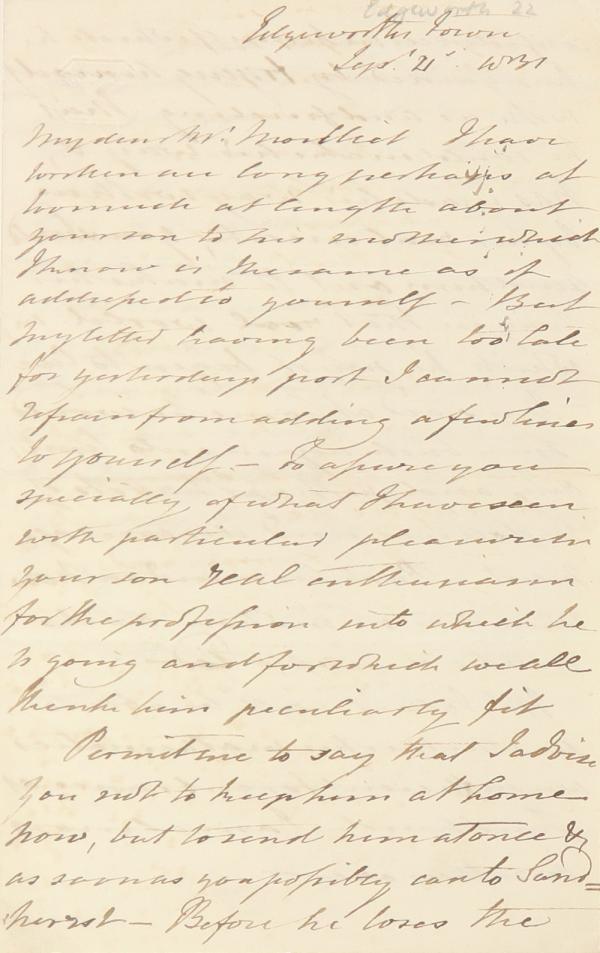 Edgeworth 22
Edgeworths Town
Sept. 21st
My dear Mr. Moilliet I have
written at long perhaps at
too much at length about
your son to his mother which
I know is the same as if
addressed to yourself – But
my letter having been too late
for yesterdays post I cannot
refrain from adding a few lines
to yourself. – To assure you
specially of what I have seen
with particular pleasure in
your son real enthusiasm
for the profession into which he
is going and for which we all
think him peculiarly fit
Permit me to say that I advise
you not to keep him at home
now, but to send him at once &
as soon as you possibly can to Sand=
hurst – Before he loses the